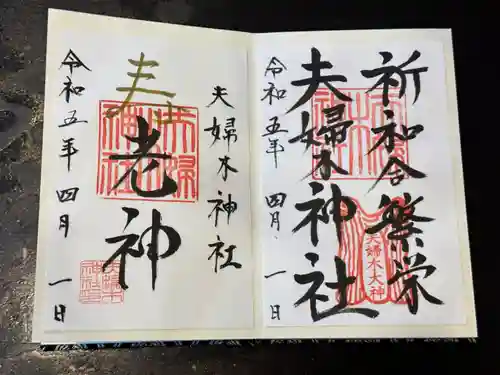 祈和合繁栄
夫婦木神社
令和五年 四月 一日
夫婦木大神
夫婦木神社
奉
老神
令和五年 四月 一日